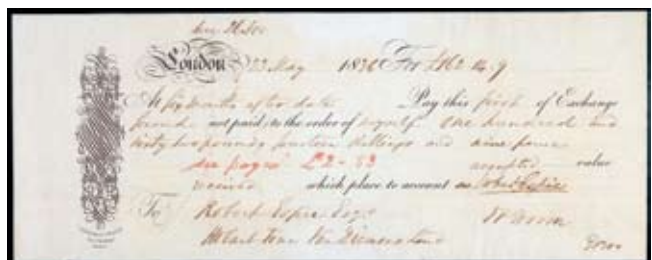 London 23 May 1836 For £162 14 9
At six months after date Pay this first of Exchange
not paid, to the order of myself One hundred and
sixty two pounds fourteen shillings and nine pence
see pages £2-53 accepted value
received which place to account as
To Robert Esqr
Hobart Town Van Diemens Land